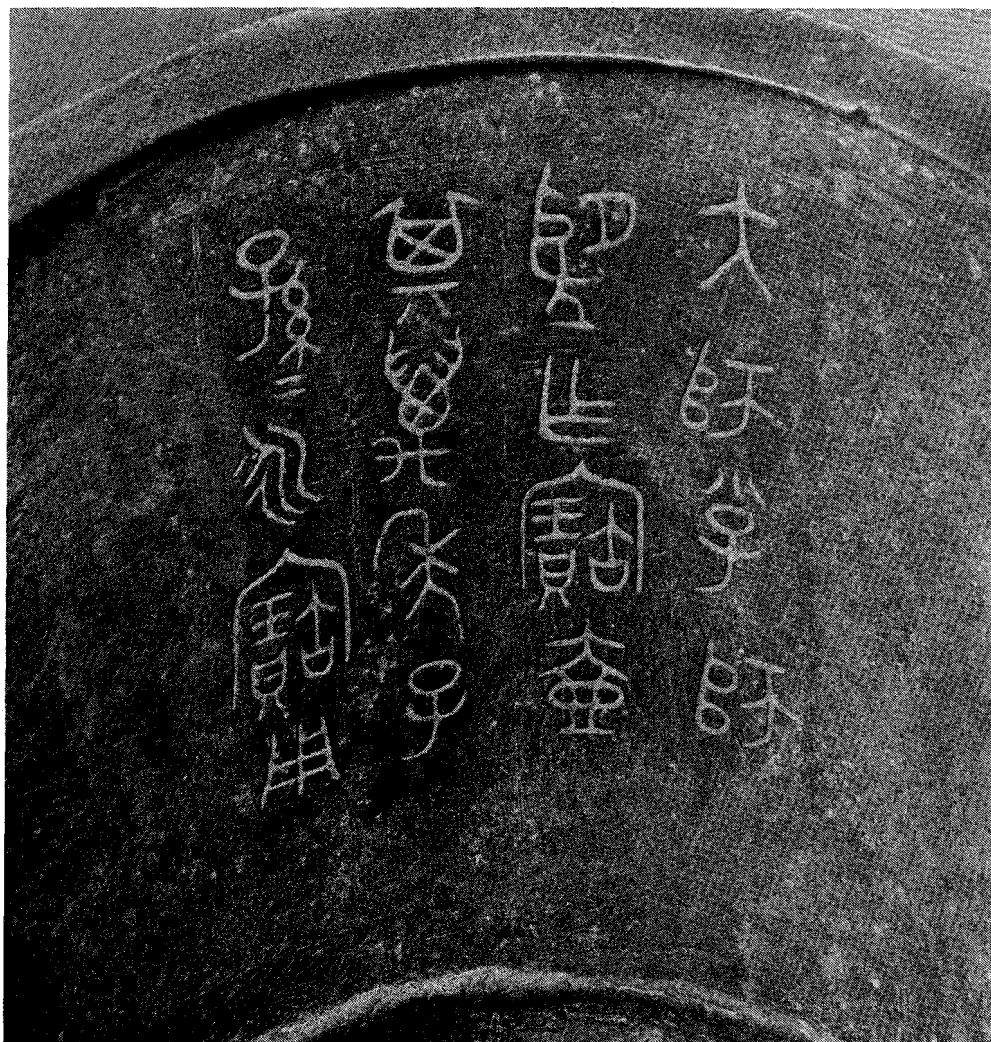 大師小子師
望乍寶壺
其萬年子
孫=永寶用